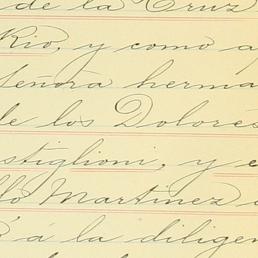 de la Cruz
Rio, y como a
señora herma
de los Dolores
stiglioni, y e
llo Martinez
á la diligen